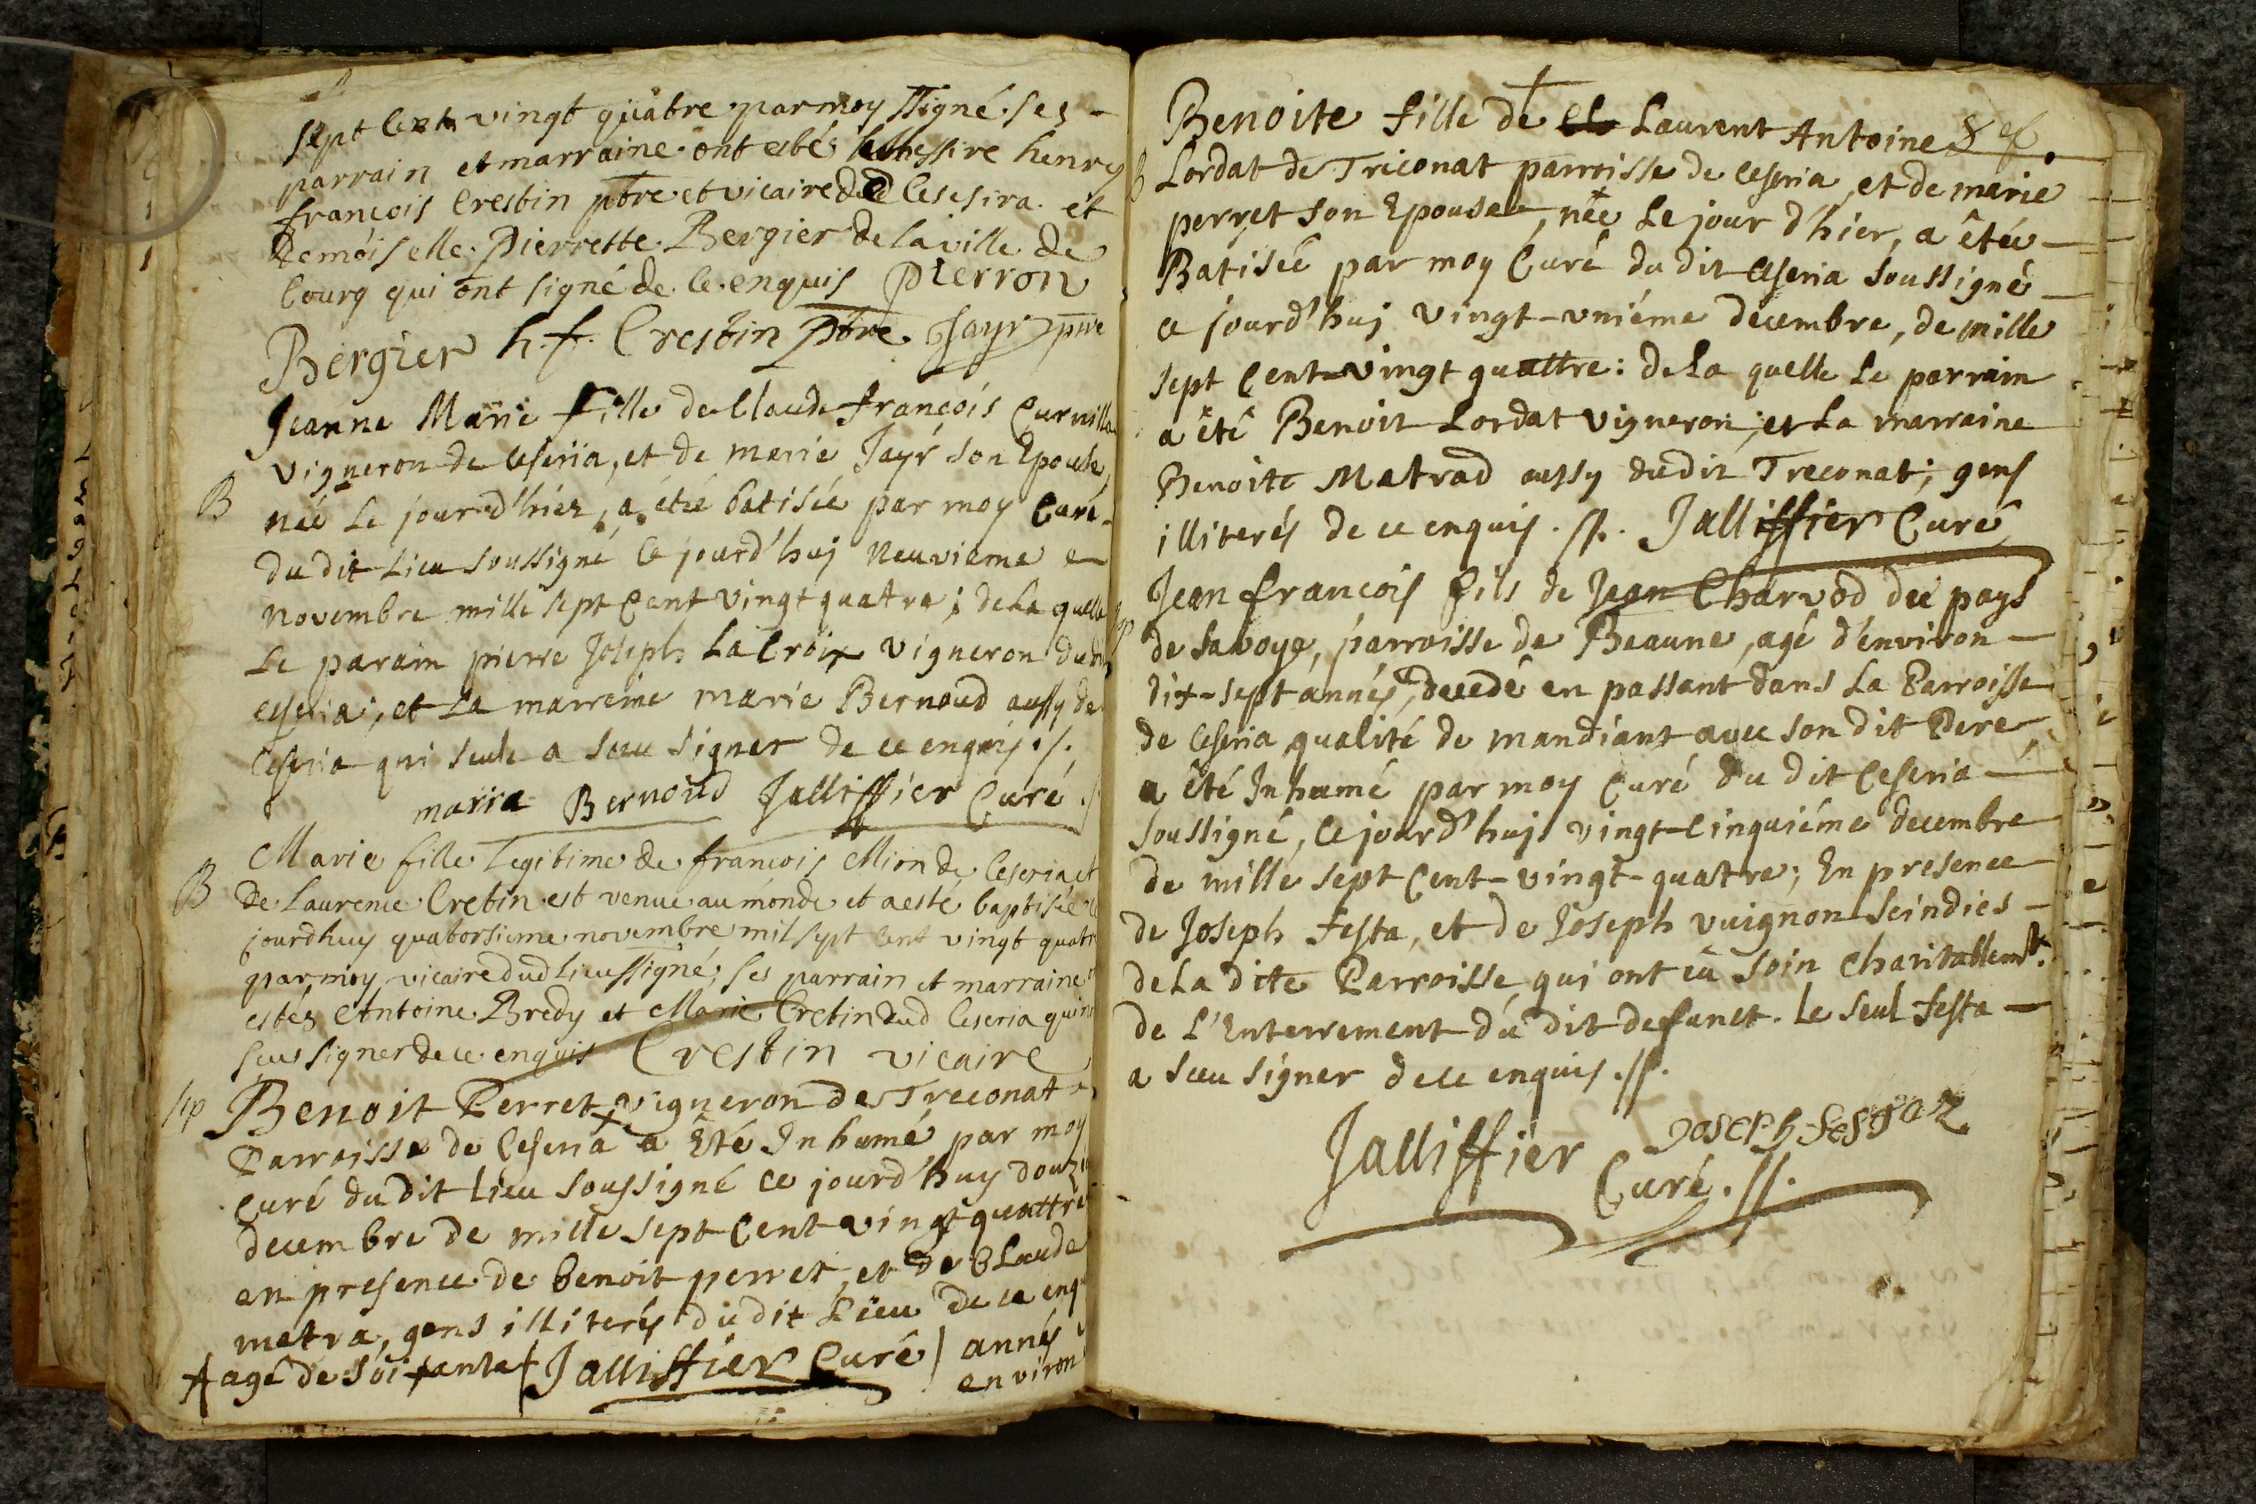 sept Cent vingt quatre par moy ssigné. ses -
parrain et marraine ont estés messire henry
francois Crestin ptre et vicaire de Cesesira. et
demoiselle. Pierrette. Bergier de la ville de
bourg qui ont signé de. Ce. enquis Pierron
Bergier h. f. Crestin Ptre. Jayr
Jeanne Marie fille de Claude françois Curnilla
vigneron de Ceseria, et de marie Jayr son Epouse,
B née Le jour d'hier, a étée batisée par moy Curé -
du dit Lieu soussigné Ce jourd'huj Neuvieme
Novembre mille sept Cent vingt quatre ; de La quelle
Le parain pierre Joseph La Croix vigneron du dit
Ceseria ; et La marreine marie Bernoud aussy de
Ceseria qui seule a sceu signer de ce enquis ./.
maria Bernoud Jalliffier Curé ./
B Marie fille Legitime de françois Mion de Ceseria et
de Laurence Cretin est venue au monde et a esté baptisée le
jourdhuy quatorsieme novembre mil sept Cent vingt quatre
par moy vicaire dud Lieu ssigné ; ses parrain et marraine
estés Antoine Bredy et Marie Cretin dud Ceseria qui
sceu signer de ce enquis Crestin vicaire
sep Benoit Perret, x vigneron de Treconat
Parroisse de Ceseria a Eté Inhumé, par moy
Curé du dit Lieu soussigné Ce jourd'huy douz
decembre de mille sept Cent vingt quattre
en presence de benoit perret, et de Claude
metra, gens illiterés du dit Lieu de ce enq
+ agé de soixante ( Jalliffier Curé ) annés
environ
Benoite fille de Laurent Antoine
B Lordat de Triconat parroisse de Ceseria, et de marie
perret son Epouse, née Le jour d'hier, a étée -
Batisée par moy Curé du dit Ceseria soussigné -
a jourd'huj vingt-vniéme decembre, de mille
sept Cent-vingt quattre : de La quelle Le parrain
a été Benoit Lordat vigneron, et La marraine
Benoite Matrad aussy du dit Treconat ; gens
illiterés de ce enquis . //. Jalliffier Curé
Jean francois fils de Jean Charvod du pays
de Savoye, parroisse de Beaune, agé d'environ -
dix-sept annés, decedé en passant dans La Parroisse
de Ceseria, qualité de mandiant avec son dit Pere,
a été Inhumé par moy Curé du dit Ceseria -
soussigné, Ce jourd'huj vingt-Cinquiéme decembre
de mille sept Cent-vingt-quatre ; En presence
de Joseph Festa, et de Joseph vuignon scindics -
de La dite Parroisse, qui ont eü soin charitablemt.
de L'Enterrement du dit defunct. Le seul Festa -
a sceu signer de ce enquis .//.
Jalliffier JosePh fesTaz
Curé .//.